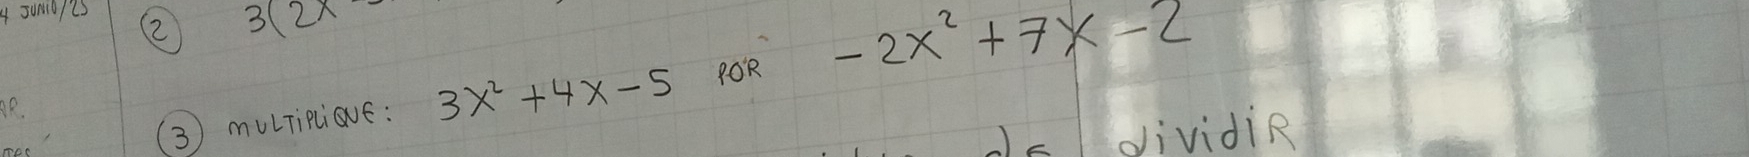 4 JUNIO/25
② 3(2X
③ MULTIPLIQUE: 3X² + 4X - 5 POR - 2X² + 7X - 2
de dividiR